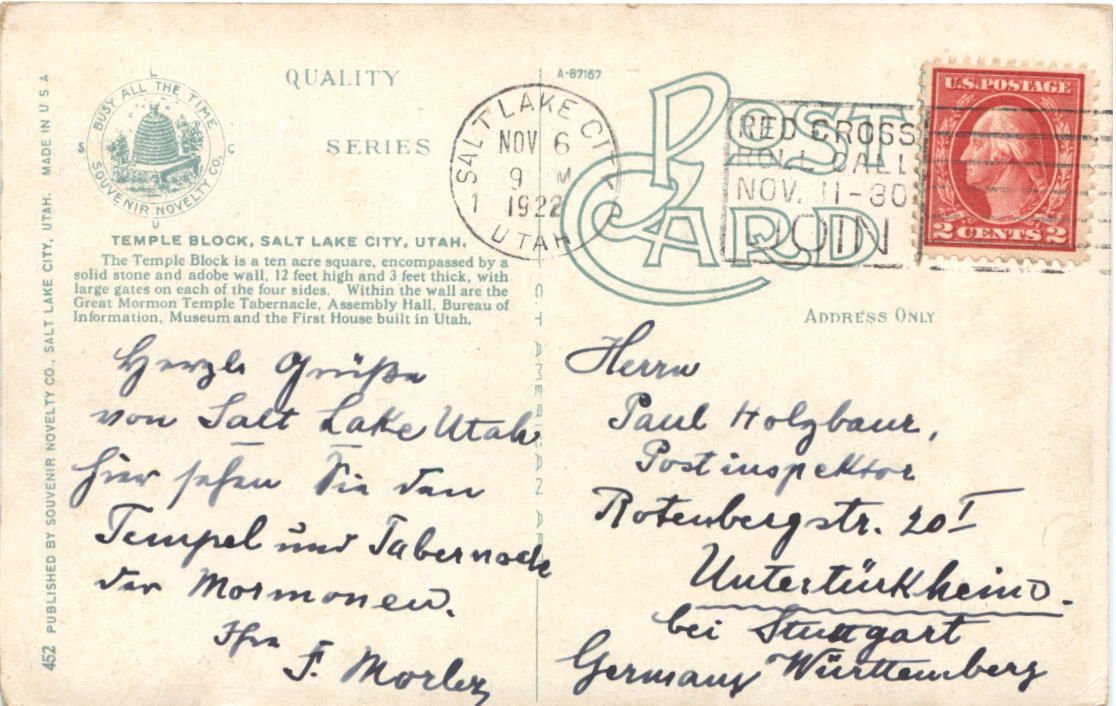 QUALITY
SERIES
BUSY ALL THE TIME
SOUVENIR NOVELTY CO.
S L C U
TEMPLE BLOCK, SALT LAKE CITY, UTAH.
The Temple Block is a ten acre square, encompassed by a
solid stone and adobe wall, 12 feet high and 3 feet thick, with
large gates on each of the four sides. Within the wall are the
Great Mormon Temple Tabernacle, Assembly Hall, Bureau of
Information, Museum and the First House built in Utah.
452 PUBLISHED BY SOUVENIR NOVELTY CO., SALT LAKE CITY, UTAH. MADE IN U S A
Herzle Grüße
von Salt Lake Utah
hier sehen Sie den
Tempel und Tabernacle
der Mormonen.
Ihr
F.
A-87167
POST
CARD
SALT LAKE CITY
NOV 6
9 M
1 1922
UTAH
RED CROSS
ROLL CALL
NOV. 11-30
JOIN
U.S. POSTAGE
2 CENTS 2
ADDRESS ONLY
Herrn
Paul Holzbaur,
Postinspektor
Rotenbergstr. 20 I
Untertürkheim.
bei Stuttgart
Germany Württemberg